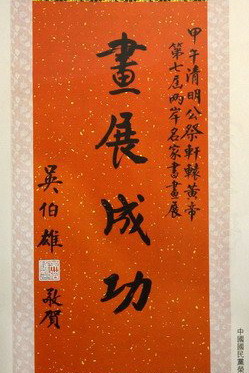 甲午清明公祭軒轅黃帝
第七屆兩岸名家書畫展
畫展成功
吳伯雄
敬賀
中國國民黨榮